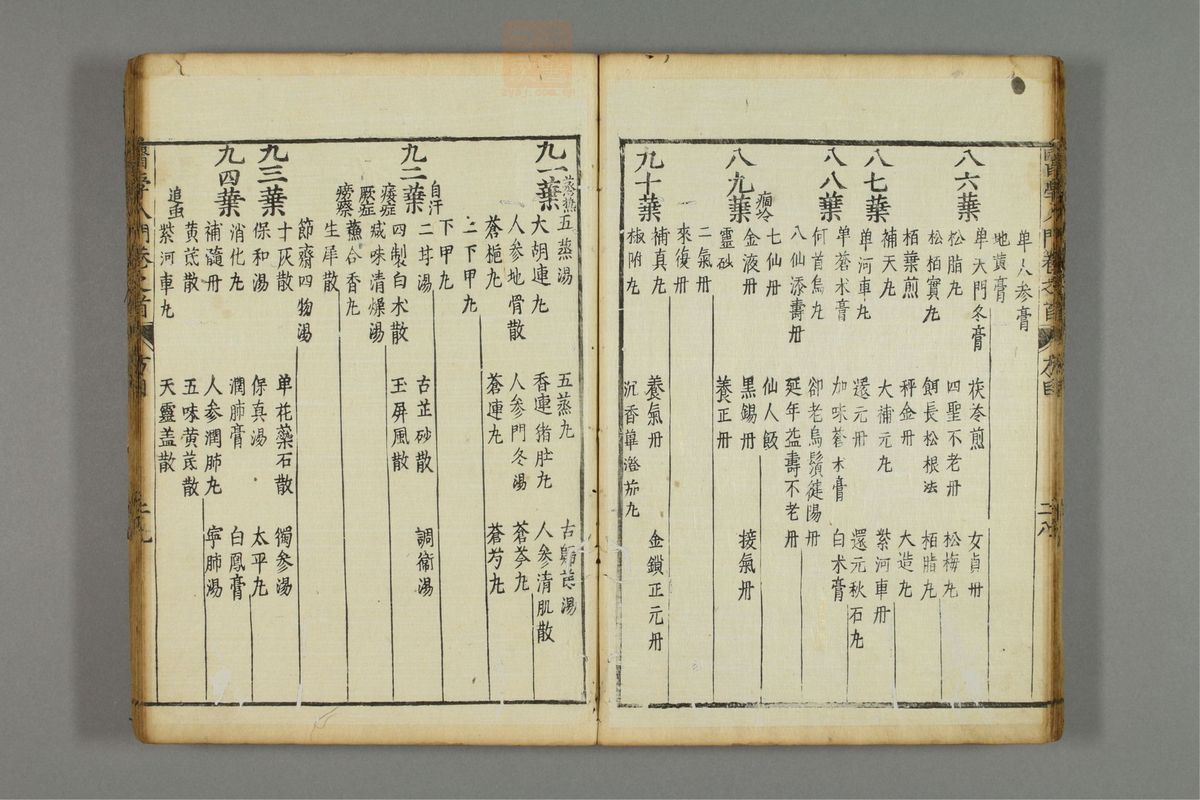 单人参膏
地黄膏
八六葉
单天門冬膏 茯苓煎 女貞丹
松脂丸 四聖不老丹 松梅丸
松栢實丸 餌長松根法 栢脂丸
栢葉煎 秤金丹 大造丸
八七葉
補天丸 大補元丸 紫河車丹
单河車丸 還元丹 還元秋石丸
八八葉
单蒼术膏 加味蒼术膏 白术膏
何首烏丸 却老烏鬚健陽丹
八仙添壽丹 延年益壽不老丹
痼冷
七仙丹 仙人飯
八九葉
金液丹 黑錫丹 接氣丹
靈砂 養正丹
二氣丹
來復丹
九十葉
補真丸 養氣丹 金鎖正元丹
椒附丸 沉香蓽澄茄丸
九一葉
蒸熱
五蒸湯 五蒸丸
大胡連丸 香連猪肚丸 人参清肌散
人参地骨散 人参門冬湯 蒼芩丸
蒼梔丸 蒼連丸 蒼芍丸
二下甲丸
下甲丸
九二葉
自汗
二甘湯 古芷砂散 調衛湯
四製白术散 玉屏風散
痿症
減味清燥湯
厥症
蘇合香丸
癆瘵
生犀散
節齋四物湯
九三葉
十灰散 单花藥石散 獨参湯
保和湯 保真湯 太平丸
九四葉
消化丸 潤肺膏 白鳳膏
補髓丹 人参潤肺丸 寧肺湯
黄芪散 五味黄芪散
追虫
紫河車丸 天靈盖散
醫學入門卷之首